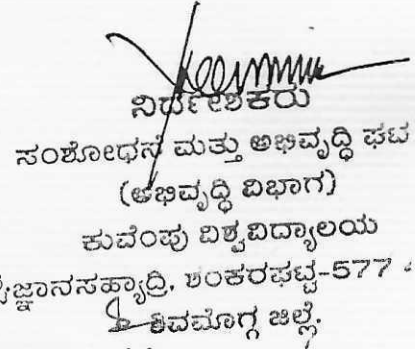 ನಿರ್ದೇಶಕರು
ಸಂಶೋಧನೆ ಮತ್ತು ಅಭಿವೃದ್ಧಿ ಘಟ
(ಅಭಿವೃದ್ಧಿ ವಿಭಾಗ)
ಕುವೆಂಪು ವಿಶ್ವವಿದ್ಯಾಲಯ
ಜ್ಞಾನಸಹ್ಯಾದ್ರಿ, ಶಂಕರಘಟ್ಟ-577
ಶಿವಮೊಗ್ಗ ಜಿಲ್ಲೆ.